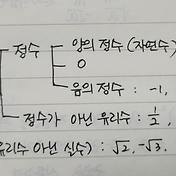 정수 양의 정수 (자연수)
0
음의 정수 : -1,
정수가 아닌 유리수 : 1/2,
유리수 아닌 실수) : √2, -√3.